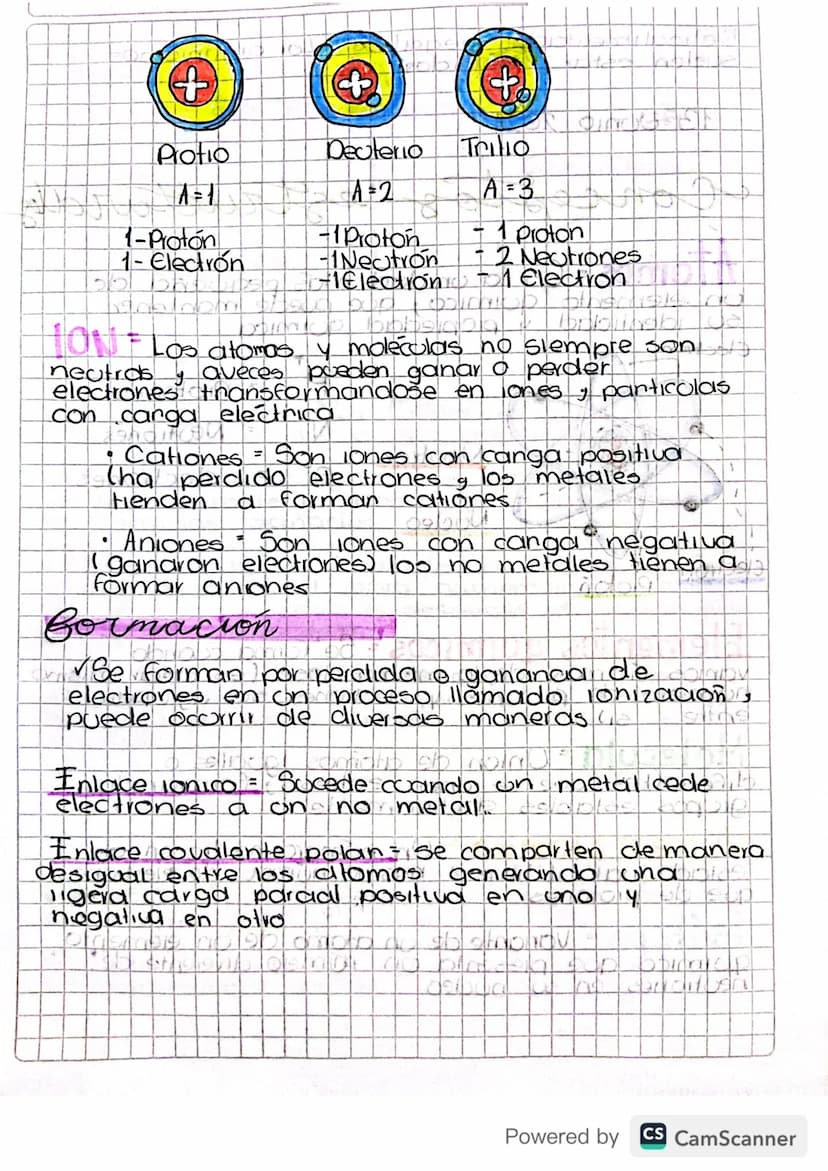 + + +
Protio Deuterio Tritio
A=1 A=2 A=3
1-Protón -1 Proton - 1 Proton
1-Electrón -1 Neutrón - 2 Neutrones
-1 Electrón - 1 Electron
ION = Los atomos y moléculas no siempre son
neutros y aveces pueden ganar o perder
electrones transformandose en iones y particulas
con carga electrica
• Cationes = Son iones con carga positiva
(ha perdido electrones y los metales
tienden a formar cationes
• Aniones = Son iones con carga negativa
(ganaron electrones) los no metales tienen a
formar aniones
formación
✓Se forman por perdida o ganancia de
electrones en un proceso llamado ionización,
puede ocurrir de diversas maneras
Enlace ionico = Sucede cuando un metal cede
electrones a un no metal.
Enlace covalente polar = se comparten de manera
desigual entre los atomos generando una
ligera carga parcial positiva en uno y
negativa en otro
Powered by CS CamScanner